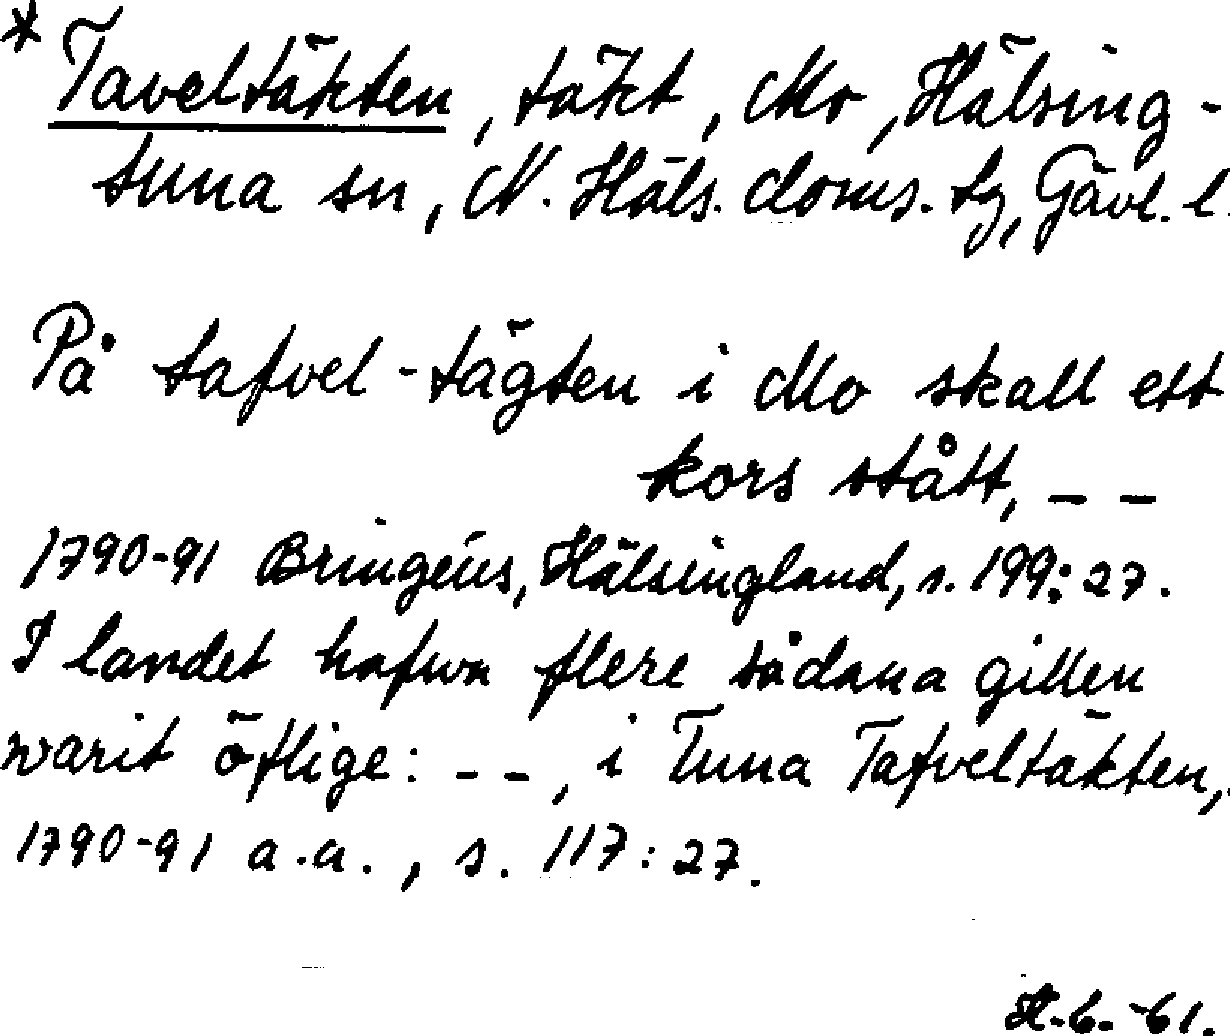 * Taveltäkten, täkt, Mo, Hälsing-
tuna sn, N. Häls. doms. tg, Gävl. l.
På tafvel-tägten i Mo skall ett
kors stått, – –
1790-91 Bringéus, Hälsingland, s. 199:27.
I landet hafwa flere sådana gillen
warit öflige: – –, i Tuna Tafveltäkten,
1790-91 a.a., s. 117:27.
-61.